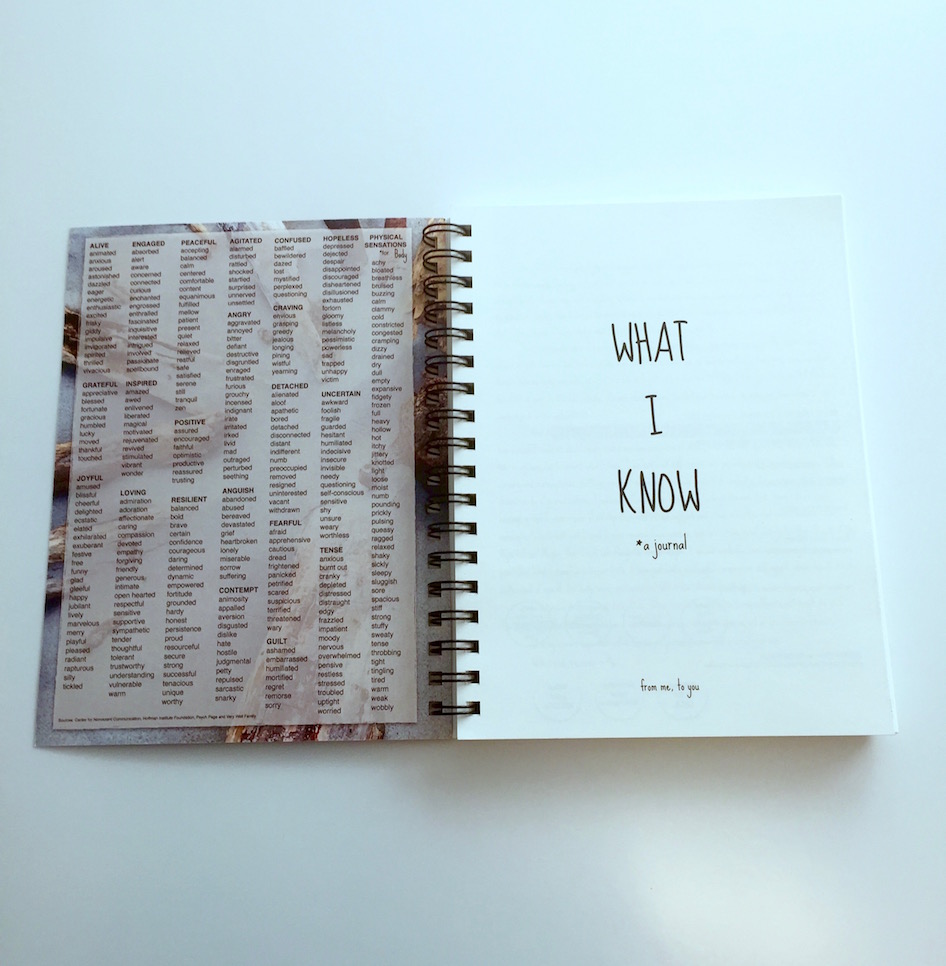 ALIVE
animated
anxious
aroused
astonished
dazzled
eager
energetic
enthusiastic
excited
frisky
giddy
impulsive
invigorated
spirited
thrilled
vivacious
GRATEFUL
appreciative
blessed
fortunate
gracious
humbled
lucky
moved
thankful
touched
JOYFUL
amused
blissful
cheerful
delighted
ecstatic
elated
exhilarated
exuberant
festive
free
funny
glad
gleeful
happy
jubilant
lively
marvelous
merry
playful
pleased
radiant
rapturous
silly
tickled
ENGAGED
absorbed
alert
aware
concerned
connected
curious
enchanted
engrossed
enthralled
fascinated
inquisitive
interested
intrigued
involved
passionate
spellbound
INSPIRED
amazed
awed
enlivened
liberated
magical
motivated
rejuvenated
revived
stimulated
vibrant
wonder
LOVING
admiration
adoration
affectionate
caring
compassion
devoted
empathy
forgiving
friendly
generous
intimate
open hearted
respectful
sensitive
supportive
sympathetic
tender
thoughtful
tolerant
trustworthy
understanding
vulnerable
warm
PEACEFUL
accepting
balanced
calm
centered
comfortable
content
equanimous
fulfilled
mellow
patient
present
quiet
relaxed
relieved
restful
safe
satisfied
serene
still
tranquil
zen
POSITIVE
assured
encouraged
faithful
optimistic
productive
reassured
trusting
RESILIENT
balanced
bold
brave
certain
confidence
courageous
daring
determined
dynamic
empowered
fortitude
grounded
hardy
honest
persistence
proud
resourceful
secure
strong
successful
tenacious
unique
worthy
AGITATED
alarmed
disturbed
rattled
shocked
startled
surprised
unnerved
unsettled
ANGRY
aggravated
annoyed
bitter
defiant
destructive
disgruntled
enraged
frustrated
furious
grouchy
incensed
indignant
irate
irritated
irked
livid
mad
outraged
perturbed
seething
ANGUISH
abandoned
abused
bereaved
devastated
grief
heartbroken
lonely
miserable
sorrow
suffering
CONTEMPT
animosity
appalled
aversion
disgusted
dislike
hate
hostile
judgmental
petty
repulsed
sarcastic
snarky
CONFUSED
baffled
bewildered
dazed
lost
mystified
perplexed
questioning
CRAVING
envious
grasping
greedy
jealous
longing
pining
wistful
yearning
DETACHED
alienated
aloof
apathetic
bored
detached
disconnected
distant
indifferent
numb
preoccupied
removed
resigned
uninterested
vacant
withdrawn
FEARFUL
afraid
apprehensive
cautious
dread
frightened
panicked
petrified
scared
suspicious
terrified
threatened
wary
GUILT
ashamed
embarrassed
humiliated
mortified
regret
remorse
sorry
HOPELESS
depressed
dejected
despair
disappointed
discouraged
disheartened
disillusioned
exhausted
forlorn
gloomy
listless
melancholy
pessimistic
powerless
sad
trapped
unhappy
victim
UNCERTAIN
awkward
foolish
fragile
guarded
hesitant
humiliated
indecisive
insecure
invisible
needy
questioning
self-conscious
sensitive
shy
unsure
weary
worthless
TENSE
anxious
burnt out
cranky
depleted
distressed
distraught
edgy
frazzled
impatient
moody
nervous
overwhelmed
pensive
restless
stressed
troubled
uptight
worried
PHYSICAL
SENSATIONS
Body
achy
bloated
breathless
bruised
buzzing
calm
clammy
cold
constricted
congested
cramping
dizzy
drained
dry
dull
empty
expansive
fidgety
frozen
full
heavy
hollow
hot
itchy
jittery
knotted
light
loose
moist
numb
pounding
prickly
pulsing
queasy
ragged
relaxed
shaky
sickly
sleepy
sluggish
sore
spacious
stiff
strong
stuffy
sweaty
tense
throbbing
tight
tingling
tired
warm
weak
wobbly
Sources: Center for Nonviolent Communication, Hoffman Institute Foundation, Psych Page and Very Well Family
WHAT
I
KNOW
*a journal
from me, to you